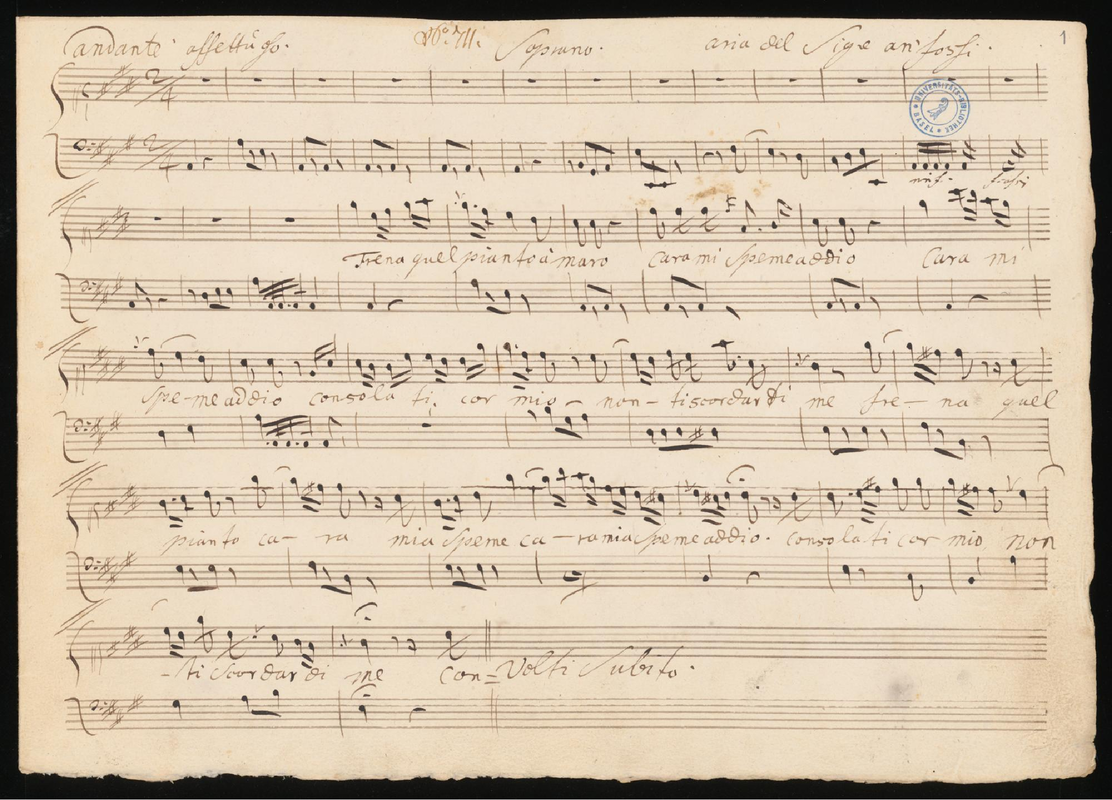 andante affettuoso. No: VII. Soprano. aria del Sigre anfossi. 1
UNIVERSITÄTS-BIBLIOTHEK BASEL
rinf.
Frena quel pianto amaro cara mi speme addio cara mi
speme addio consola ti cor mio non ti scordar di me fre na quel
pianto ca ra mia speme ca ra mia speme addio. consola ti cor mio non
ti scordar di me con Volti Subito.